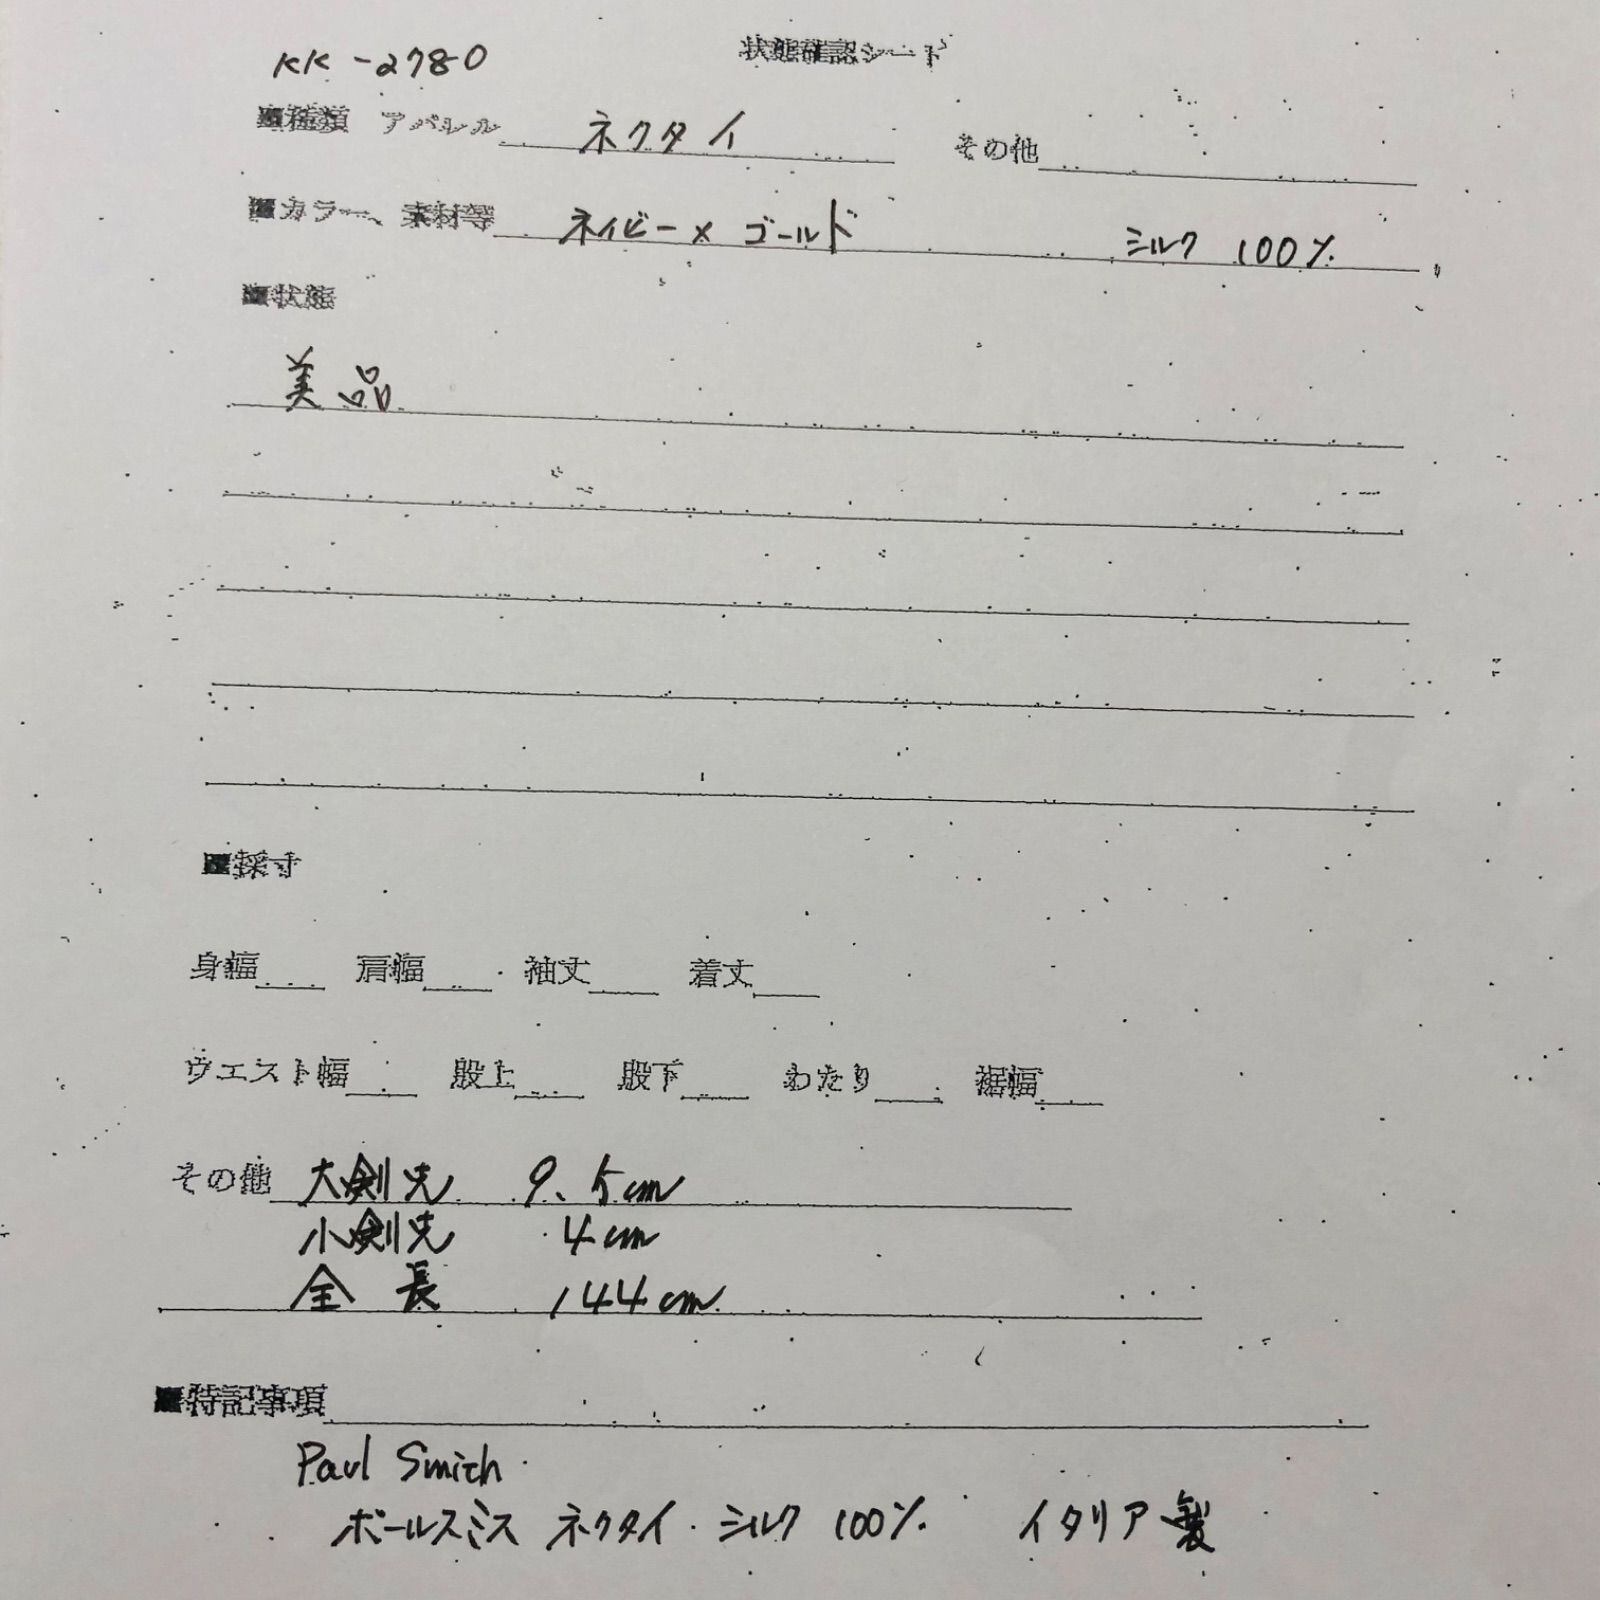 KK-2780
状態確認シート
■種類 アパレル ネクタイ その他
■カラー、素材等 ネイビー×ゴールド シルク 100%
■状態
美品
■採寸
身幅 肩幅 袖丈 着丈
ウエスト幅 股上 股下 わたり 裾幅
その他 大剣先 9.5cm
小剣先 4cm
全長 144cm
■特記事項
Paul Smith
ポールスミス ネクタイ シルク 100% イタリア製